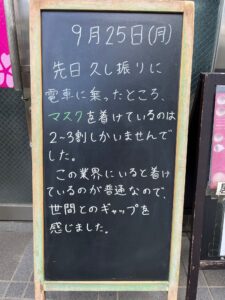 9月25日(月)
先日久し振りに
電車に乗ったところ、
マスクを着けているのは
2~3割しかいませんで
した。
この業界にいると着け
ているのが普通なので、
世間とのギャップを
感じました。